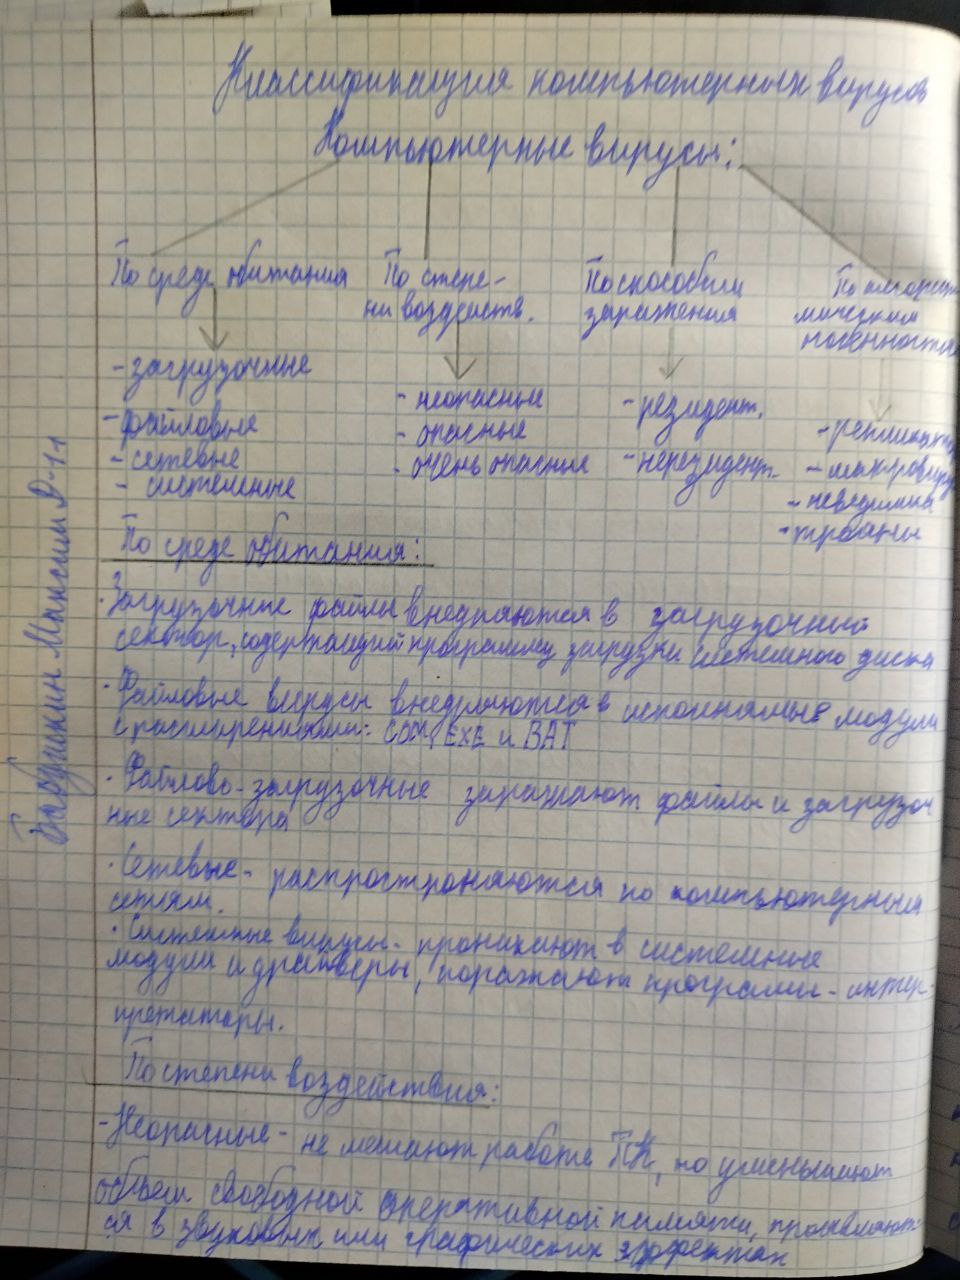 Классификация компьютерных вирусов
Компьютерные вирусы:
По среде обитания
- загрузочные
- файловые
- сетевые
- системные
По степе-
ни воздейств.
- неопасные
- опасные
- очень опасные
По способам
заражения
- резидент.
- нерезидент.
По алгорит
мическим
- 
- макровирус
- невидимки
- трояны
По среде обитания:
· Загрузочные файлы внедряются в загрузочный
сектор, содержащий программу загрузки системного диска
· Файловые вирусы внедряются в исполнямые модули
с расширениями: COM, EXE и BAT
· Файлово-загрузочные заражают файлы и загрузоч
ные сектора
· Сетевые - распространяются по компьютерным
сетям.
· Системные вирусы - проникают в системные
модули и драйверы, поражают программы - интер-
претаторы.
По степени воздействия:
- Неопасные - не мешают работе ПК, но уменьшают
объем свободной оперативной памяти, проявляют-
ся в звуковых или графических эффектах
Максим Д-11